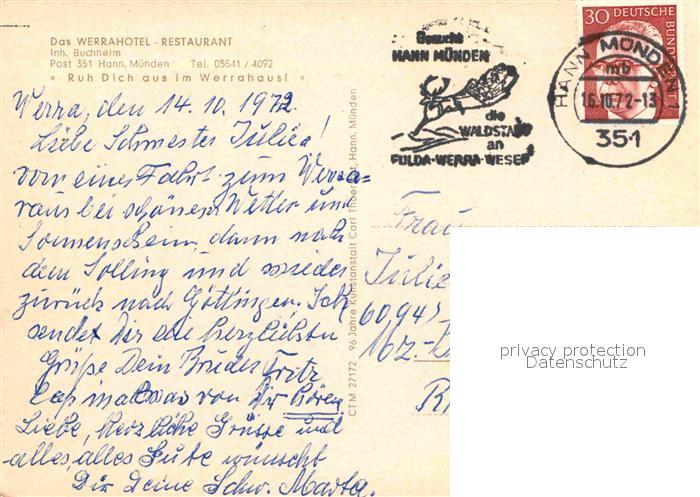 Das WERRAHOTEL - RESTAURANT
Inh. Buchheim
Post 351 Hann. Münden Tel. 05541 / 4092
» Ruh Dich aus im Werrahaus! «
Werra, den 14.10.1972.
Liebe Schwester Julie!
von eines Fahrt zum Werra=
raus bei schönem Wetter und
Sonnenschein, dann nach
dem Solling und wieder
zurück nach Göttingen. Ich
sendet Dir die herzlichsten
Grüße Dein Bruder Fritz
was von Dir hören
Liebe, herzliche Grüsse und
alles, alles Gute wünscht
Dir Deine Schw. Marta.
CTM 27172 · 96 Jahre Kunstanstalt Carl Thoericht, Hann. Münden
Besucht
HANN MÜNDEN
die
WALDSTADT
an
FULDA-WERRA-WESER
30 DEUTSCHE BUND
HANN MÜNDEN 1
mb
16.10.72-13
351
Frau
Julie
Mz.-
privacy protection
Datenschutz